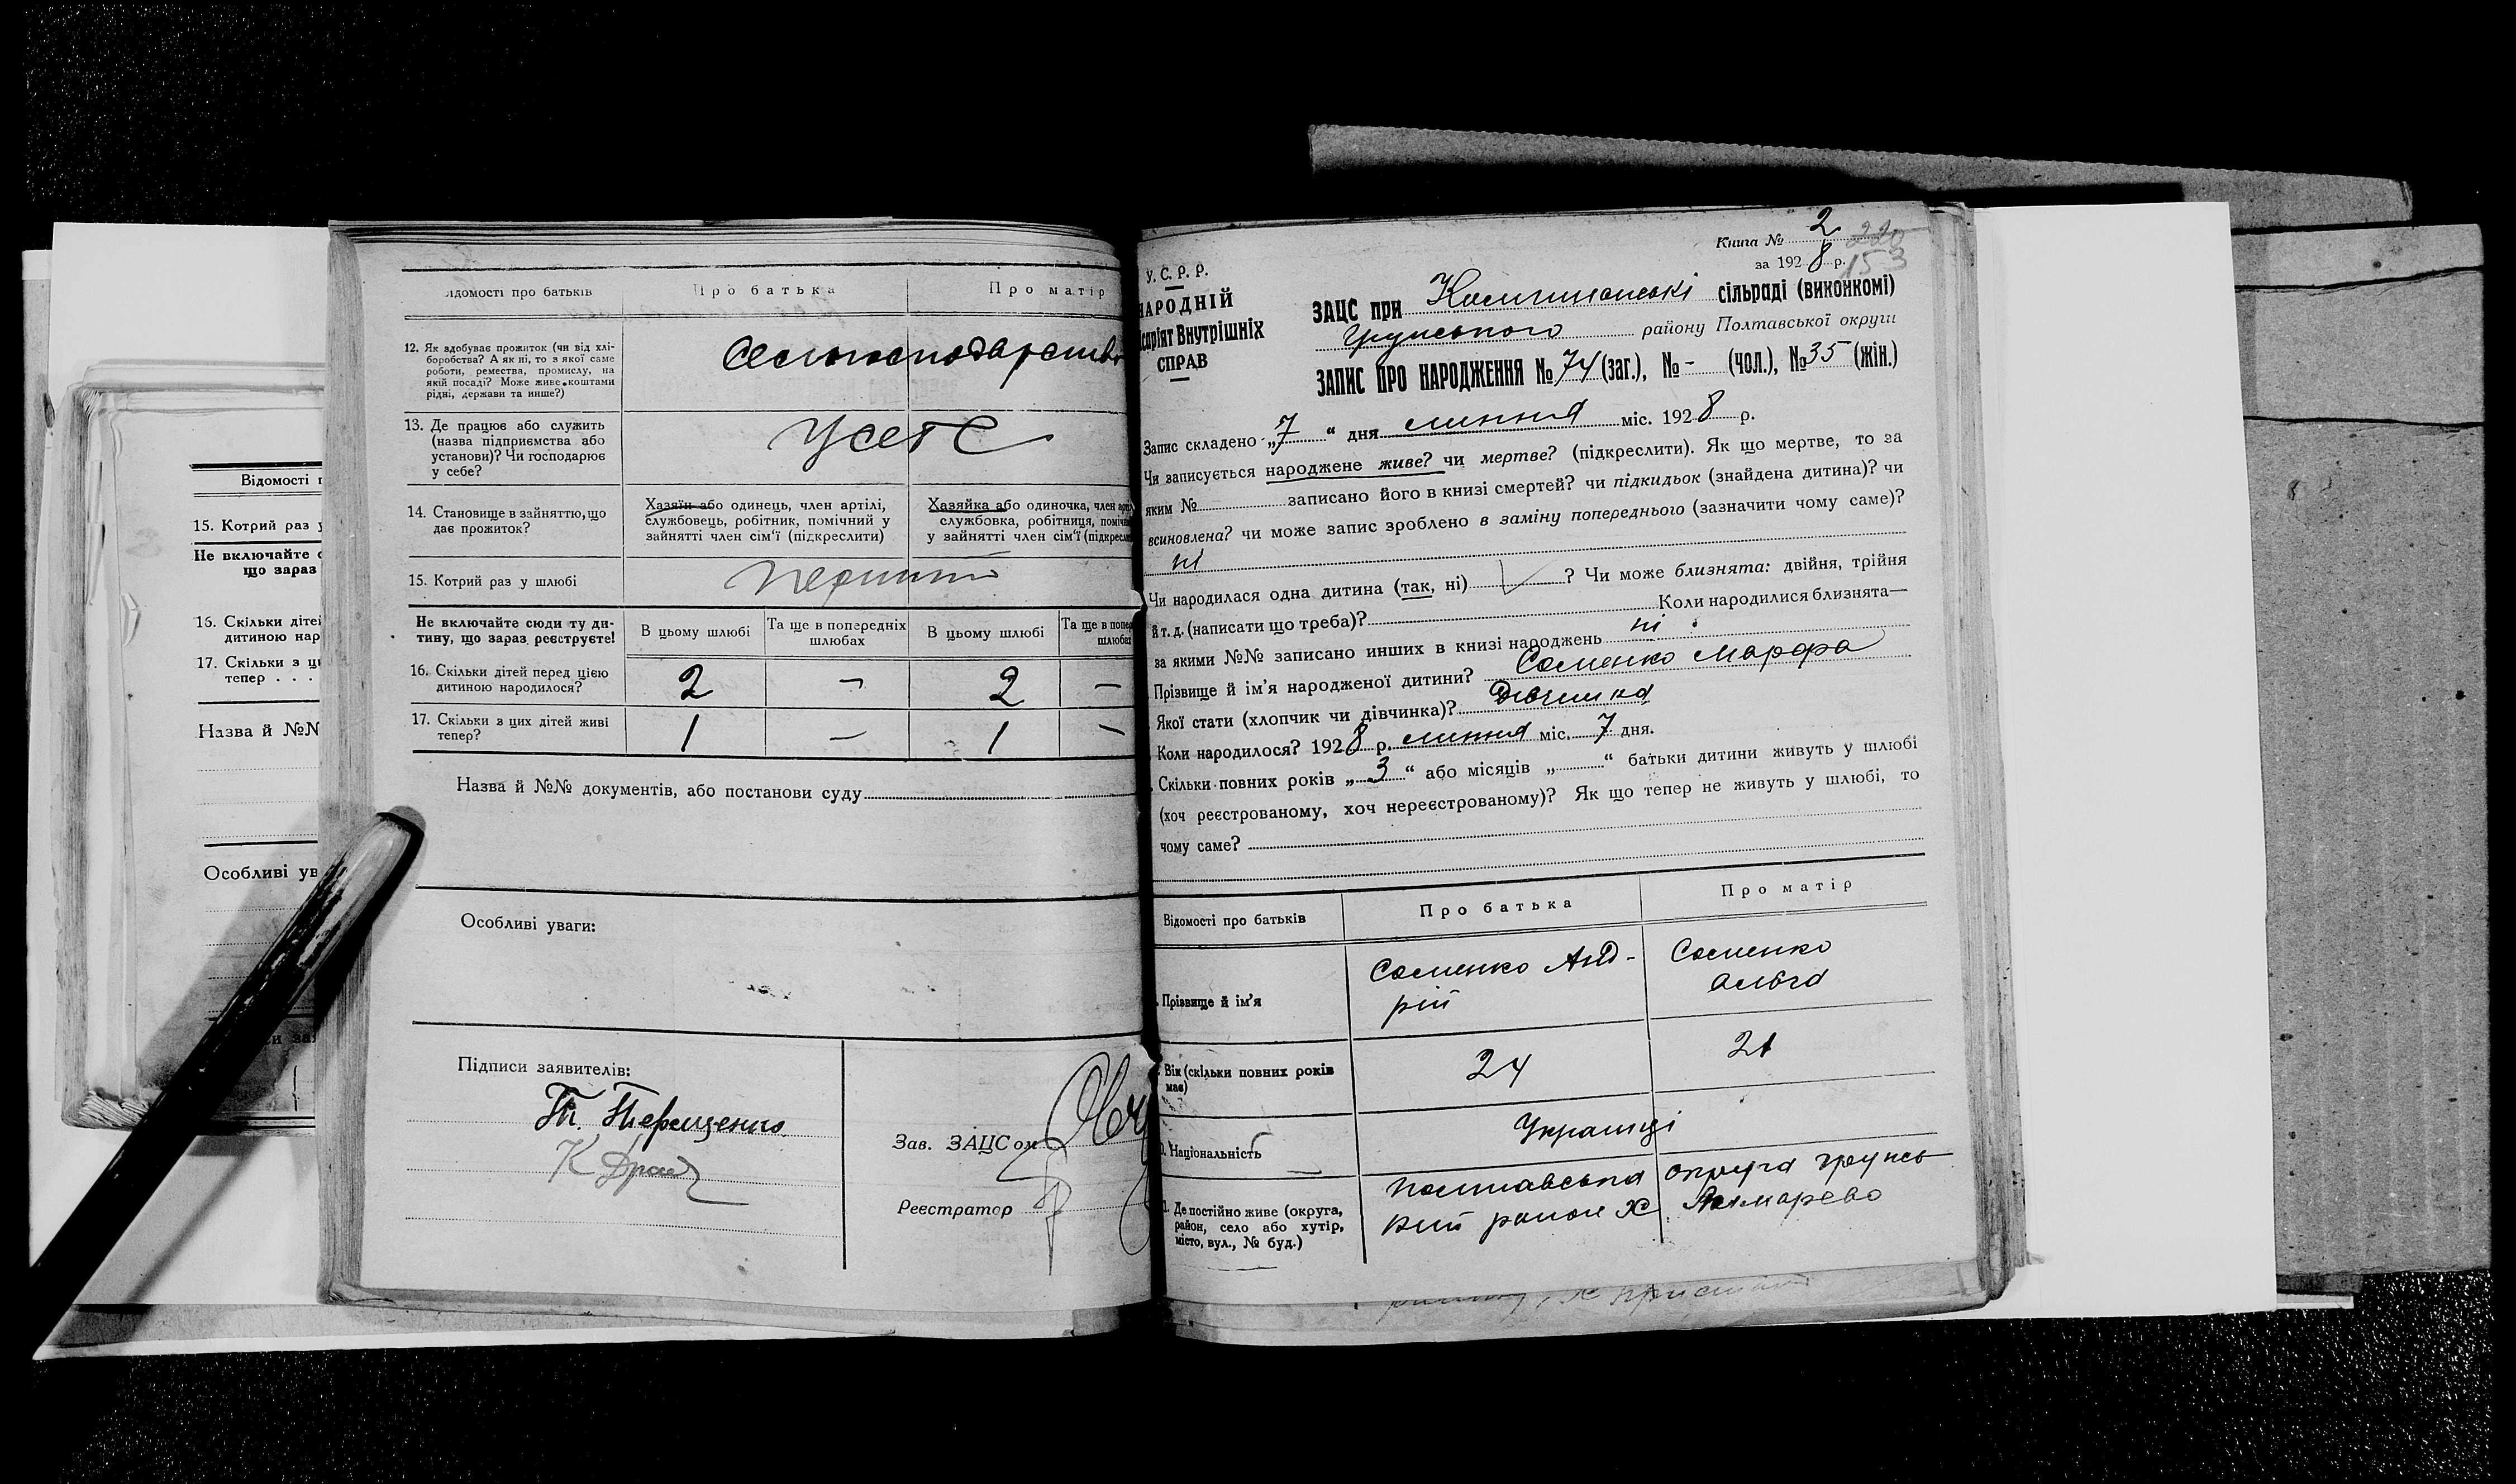 Відомості п
15. Котрий раз у
Не включайте с
що зараз
16. Скільки дітей
дитиною нар
17. Скільки з ці
тепер . . .
Назва й №№
Особливі ув
ідомості про батьків
Про батька
Про матір
12. Як здобуває прожиток (чи від хлі-
боробства? А як ні, то з якої саме
роботи, ремества, промислу, на
якій посаді? Може живе коштами
рідні, держави та инше?)
13. Де працює або служить
(назва підприємства або
установи)? Чи господарює
у себе?
усебе
14. Становище в зайняттю, що
дає прожиток?
Хазяїн або одинець, член артілі,
службовець, робітник, помічний у
зайнятті член сім'ї (підкреслити)
Хазяйка або одиночка, член арті
службовка, робітниця, помічн
у зайнятті член сім'ї (підкресли
15. Котрий раз у шлюбі
Не включайте сюди ту ди-
тину, що зараз реєструєте!
В цьому шлюбі
Та ще в попередніх
шлюбах
В цьому шлюбі
Та ще в попер
шлюбах
16. Скільки дітей перед цією
дитиною народилося?
2 – 2 –
17. Скільки з цих дітей живі
тепер?
1 – 1 –
Назва й №№ документів, або постанови суду
Особливі уваги:
Підписи заявителів:
Т. Терещенко
Зав. ЗАЦСом
Реєстратор
Книга № 2
220
за 1928 р.
153
У. С. Р. Р.
НАРОДНІЙ
ісаріят Внутрішніх
СПРАВ
ЗАЦС при сільраді (виконкомі)
Грунського району Полтавської округи
ЗАПИС ПРО НАРОДЖЕННЯ № 74 (заг.), № - (чол.), № 35 (жін.)
Запис складено „7“ дня липня міс. 1928 р.
Чи записується народжене живе? чи мертве? (підкреслити). Як що мертве, то за
яким № записано його в книзі смертей? чи підкидьок (знайдена дитина)? чи
всиновлена? чи може запис зроблено в заміну попереднього (зазначити чому саме)?
ні
Чи народилася одна дитина (так, ні) ? Чи може близнята: двійня, трійня
й т. д. (написати що треба)? Коли народилися близнята—
за якими №№ записано инших в книзі народжень ні
Прізвище й ім'я народженої дитини? Соменко Марфа
Якої стати (хлопчик чи дівчинка)? Дівчинка
Коли народилося? 1928 р. липня міс. 7 дня.
Скільки повних років „3“ або місяців „ “ батьки дитини живуть у шлюбі
(хоч реєстрованому, хоч нереєстрованому)? Як що тепер не живуть у шлюбі, то
чому саме?
Відомості про батьків
Про батька
Про матір
Прізвище й ім'я
Соменко Анд-
рій
Соменко
Ольга
Вік (скільки повних років
має)
24
21
Національність
Українці
1. Де постійно живе (округа,
район, село або хутір,
місто, вул., № буд.)
Полтавська округа Грунсь
кий район Х.